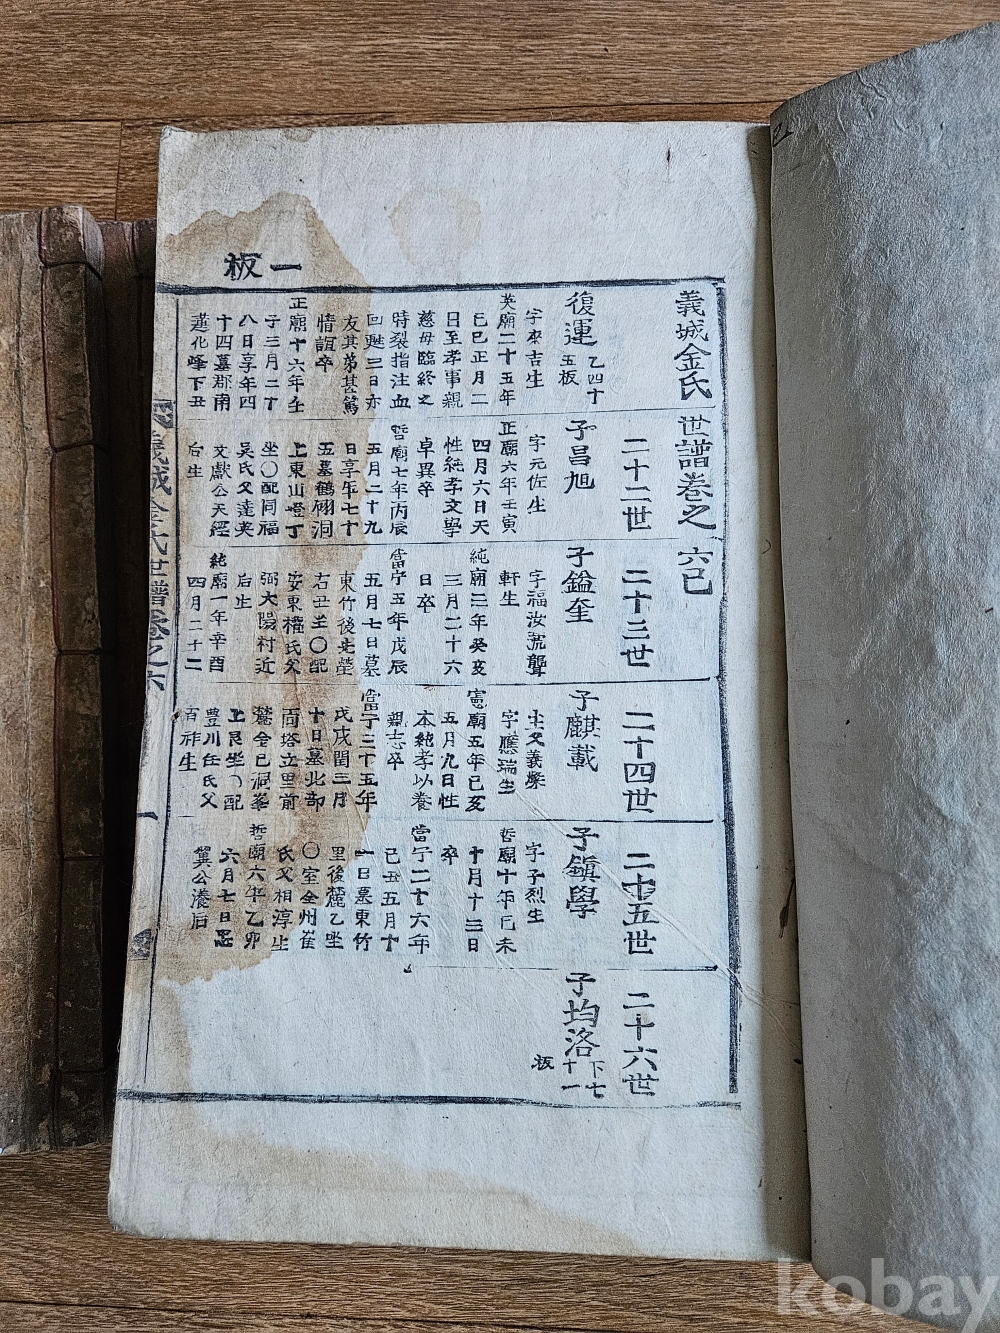 板一
義城金氏世譜卷之六巳
二十二世
二十三世
二十四世
二十五世
二十六世
復運
乙四十
五板
字來吉生
英廟二十五年
己巳正月二
日至孝事親
慈母臨終之
時裂指注血
回甦三日亦
友其弟甚篤
情誼卒
正廟十六年壬
子三月二十
八日享年四
十四墓郡南
蓮化峰下丑
子昌旭
字元佐生
正廟六年壬寅
四月六日天
性純孝文學
卓異卒
哲廟七年丙辰
五月二十九
日享年七十
五墓鶴翎洞
上東山嶝丁
坐〇配同福
吳氏父達夾
文獻公天經
后生
子鎰奎
字福汝號聾
軒生
純廟三年癸亥
三月二十六
日卒
當宁五年戊辰
五月七日墓
東竹後先塋
右丑坐〇配
安東權氏父
弼大陽村近
后生
純廟一年辛酉
四月二十二
子麒載
生父義榮
字應瑞生
憲廟五年己亥
五月九日性
本純孝以養
親志卒
當宁三十五年
戊戌閏三月
十日墓北部
面塔立里前
麓金巳洞峯
上艮坐〇配
豊川任氏父
百祚生
子鎭學
字子烈生
哲廟十年己未
十月十三日
卒
當宁二十六年
己丑五月十
一日墓東竹
里後麓乙坐
〇室全州崔
氏父相淳生
哲廟六年乙卯
六月七日忌
冀公濩后
子均洛
下七
十一
板
義城金氏世譜卷之六
一
kobay